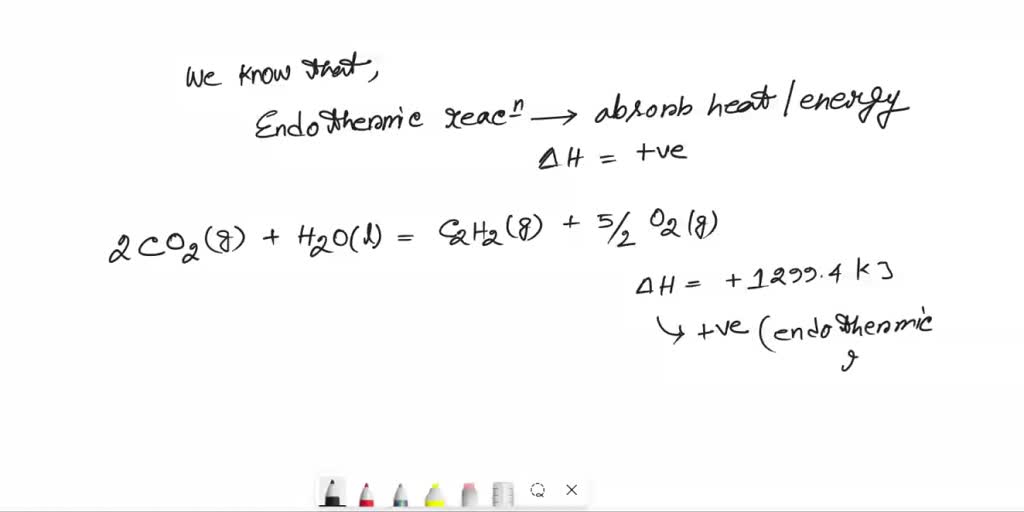 We know that,
Endothermic reacⁿ → absorb heat/energy
ΔH = +ve
2CO₂(g) + H₂O(l) = C₂H₂(g) + 5/2 O₂(g)
ΔH = +1299.4 kJ
↳ +ve (endothermic
r